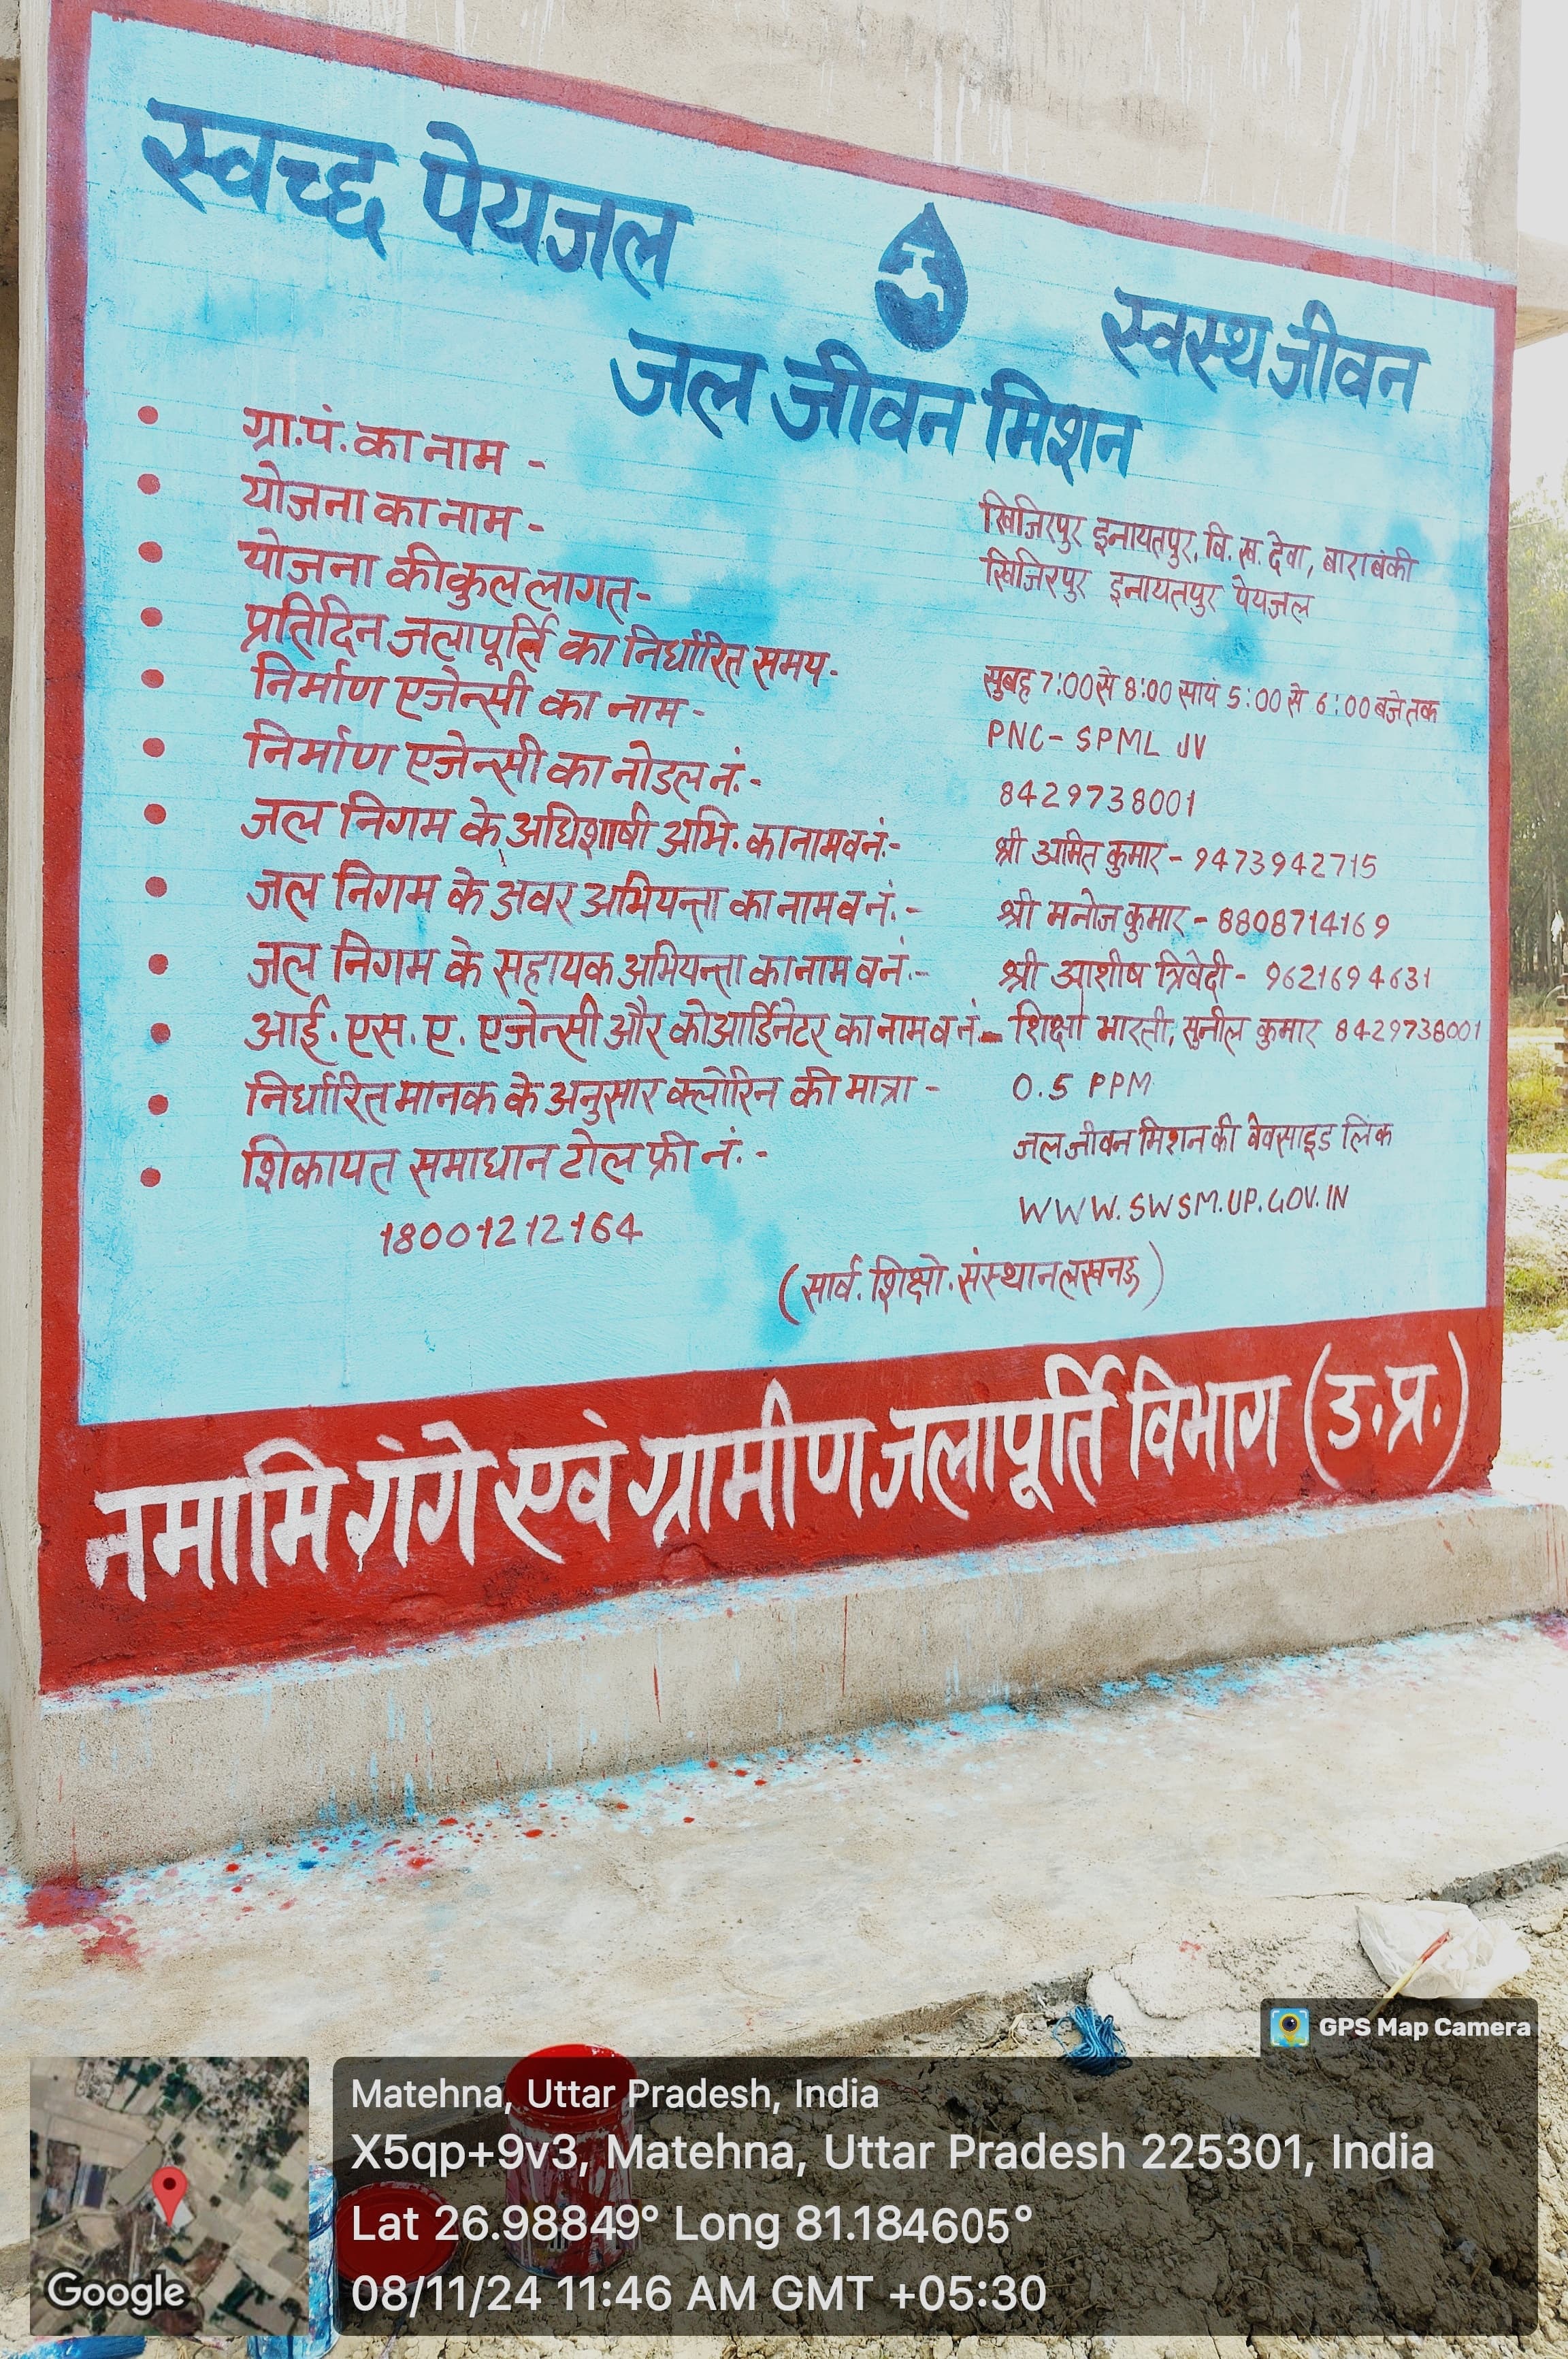 स्वच्छ पेयजल
स्वस्थ जीवन
जल जीवन मिशन
• ग्रा.पं. का नाम - खिजिरपुर इनायतपुर, वि.ख. देवा, बाराबंकी
• योजना का नाम - खिजिरपुर इनायतपुर पेयजल
• योजना की कुल लागत-
• प्रतिदिन जलापूर्ति का निर्धारित समय- सुबह 7:00 से 8:00 सायं 5:00 से 6:00 बजे तक
• निर्माण एजेन्सी का नाम - PNC- SPML JV
• निर्माण एजेन्सी का नोडल नं.- 8429738001
• जल निगम के अधिशाषी अभि. का नाम व नं.- श्री अमित कुमार - 9473942715
• जल निगम के अवर अभियन्ता का नाम व नं.- श्री मनोज कुमार - 8808714169
• जल निगम के सहायक अभियन्ता का नाम व नं.- श्री आशीष त्रिवेदी - 9621694631
• आई.एस.ए. एजेन्सी और कोआर्डिनेटर का नाम व नं.- शिक्षा भारती, सुनील कुमार 8429738001
• निर्धारित मानक के अनुसार क्लोरिन की मात्रा - 0.5 PPM
• शिकायत समाधान टोल फ्री नं.- जल जीवन मिशन की वेवसाइड लिंक
18001212164 WWW.SWSM.UP.GOV.IN
(सार्व. शिक्षो. संस्थान लखनऊ)
नमामि गंगे एवं ग्रामीण जलापूर्ति विभाग (उ.प्र.)
GPS Map Camera
Matehna, Uttar Pradesh, India
X5qp+9v3, Matehna, Uttar Pradesh 225301, India
Lat 26.98849° Long 81.184605°
08/11/24 11:46 AM GMT +05:30
Google